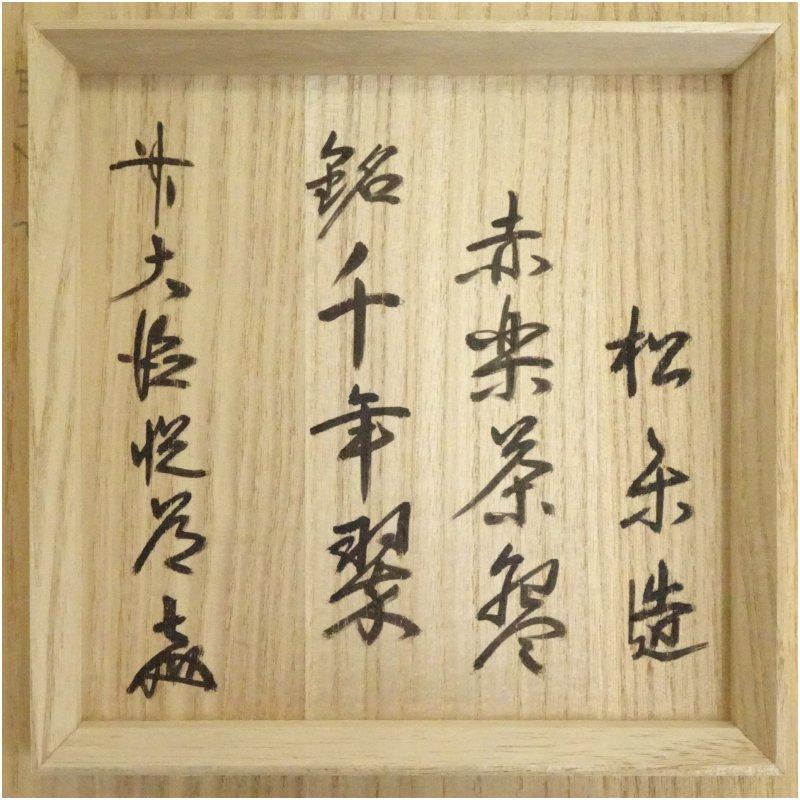 松楽造
赤楽茶盌
銘千年翠
前大徳悦道